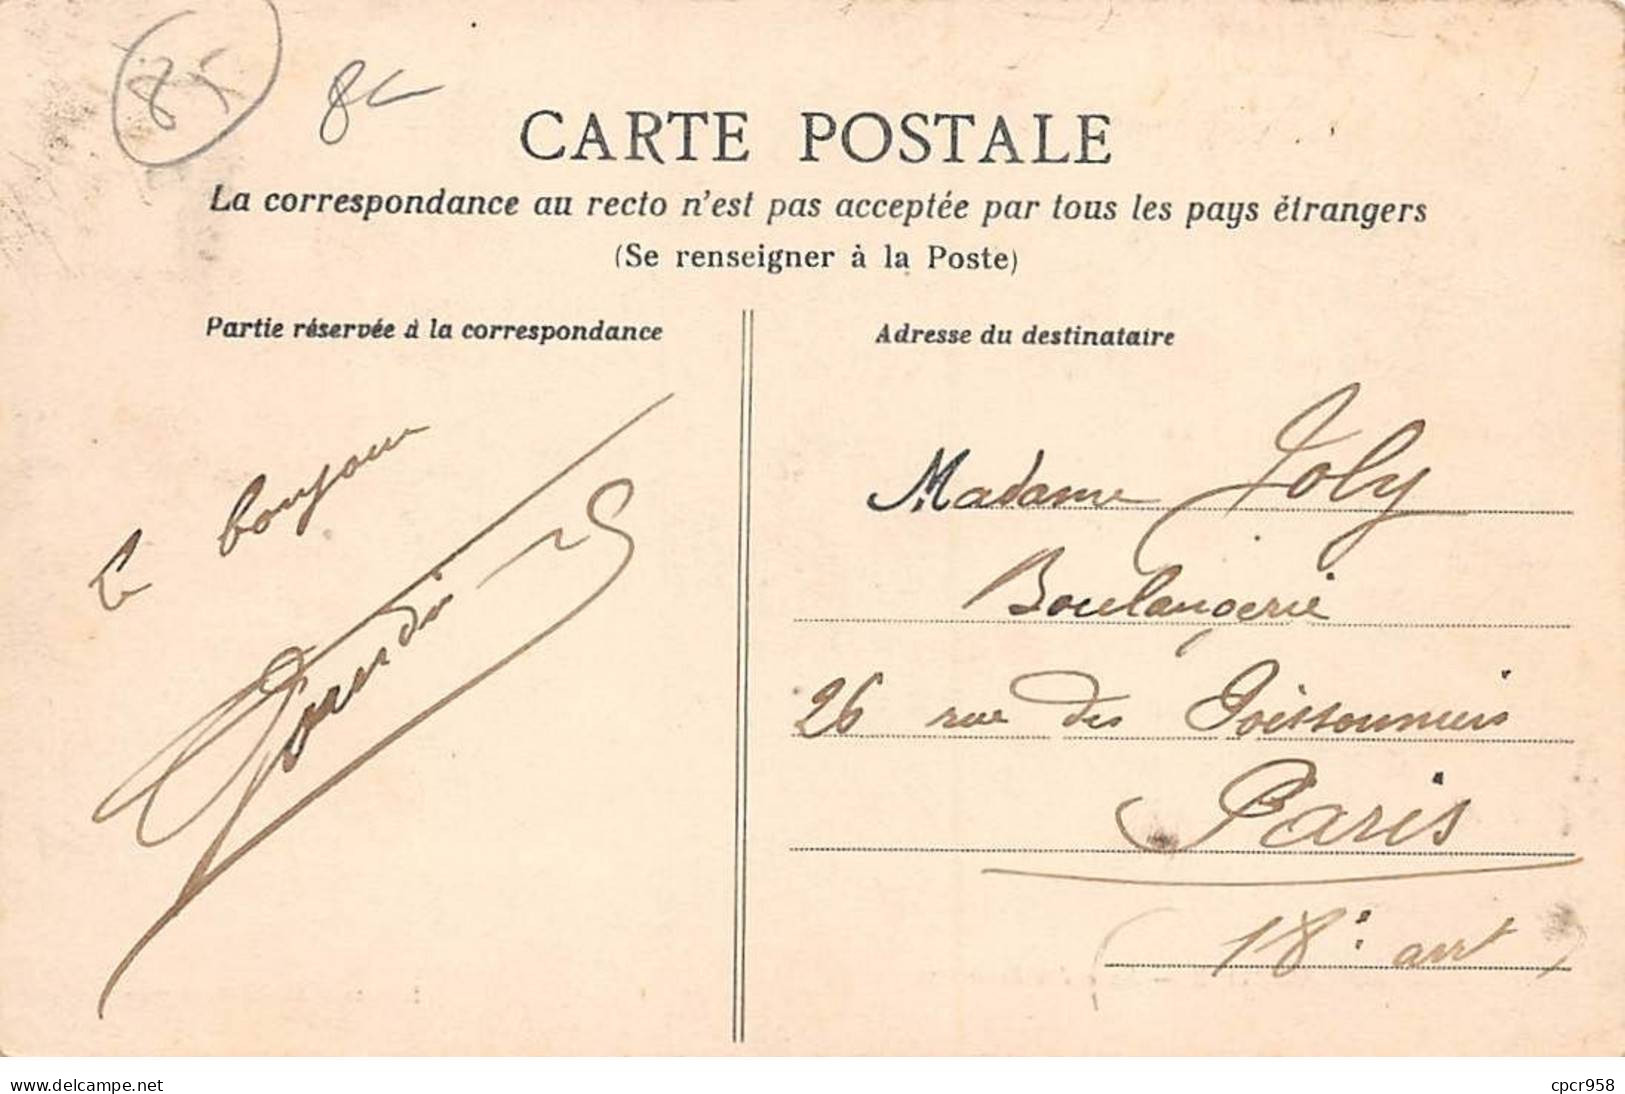 85
8
CARTE POSTALE
La correspondance au recto n'est pas acceptée par tous les pays étrangers
(Se renseigner à la Poste)
Partie réservée à la correspondance
Adresse du destinataire
bonjour
Madame Joly
Boulangerie
26 rue des Poissonniers
Paris
18e arrt
www.delcampe.net
cpcr958